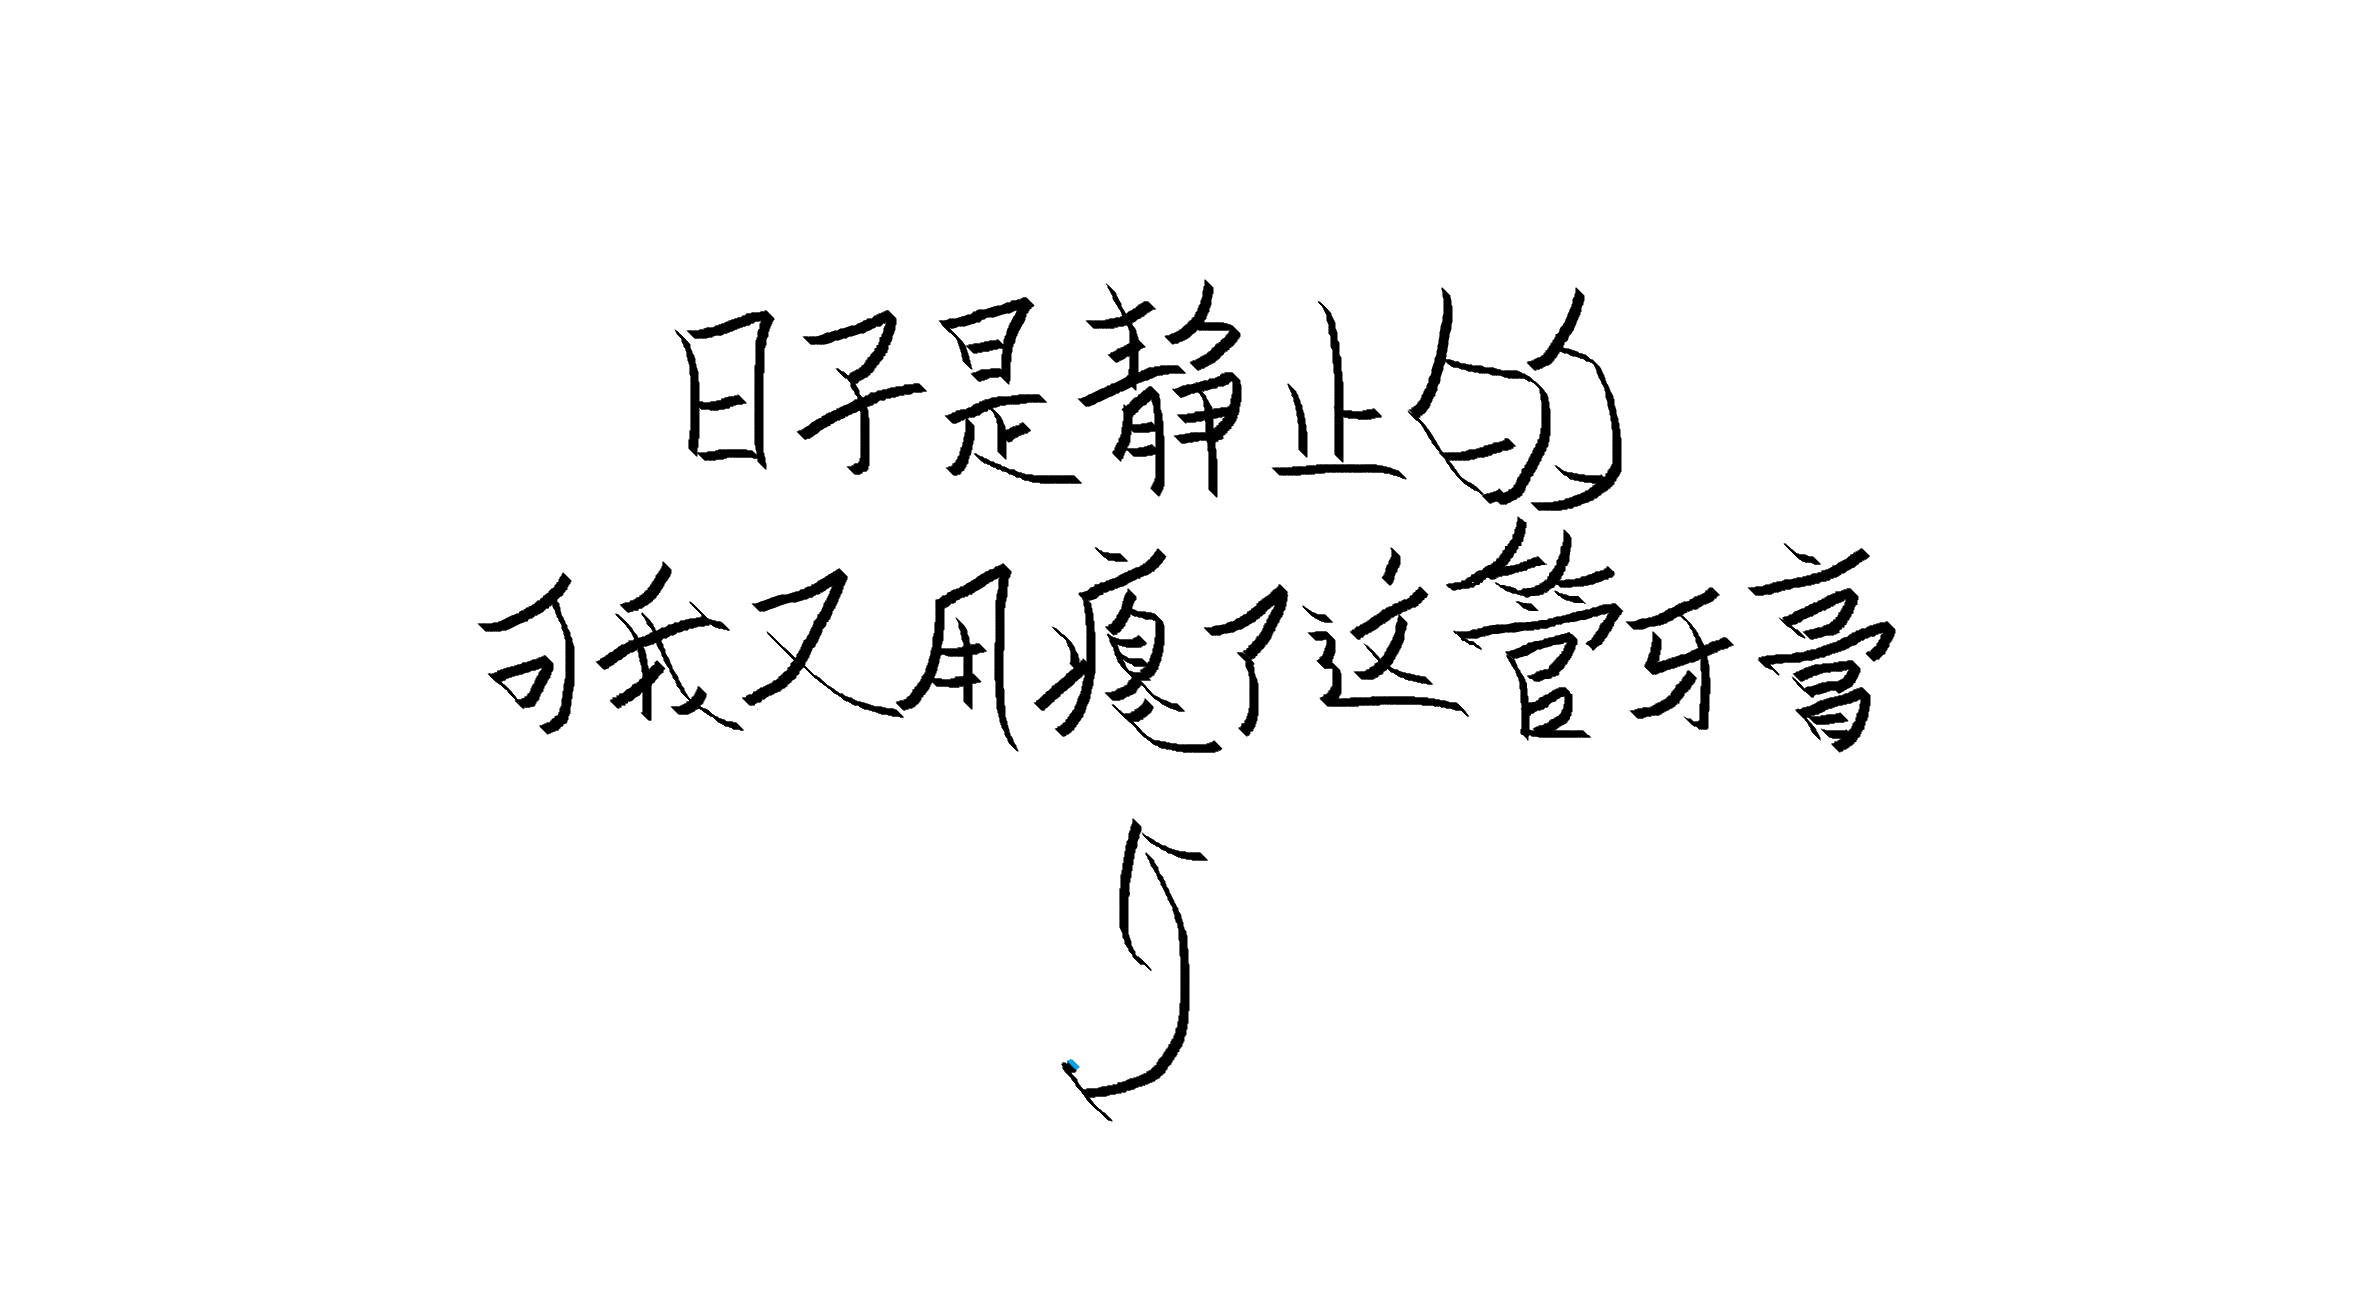 日子是静止的
可我又用瘪了这管牙膏